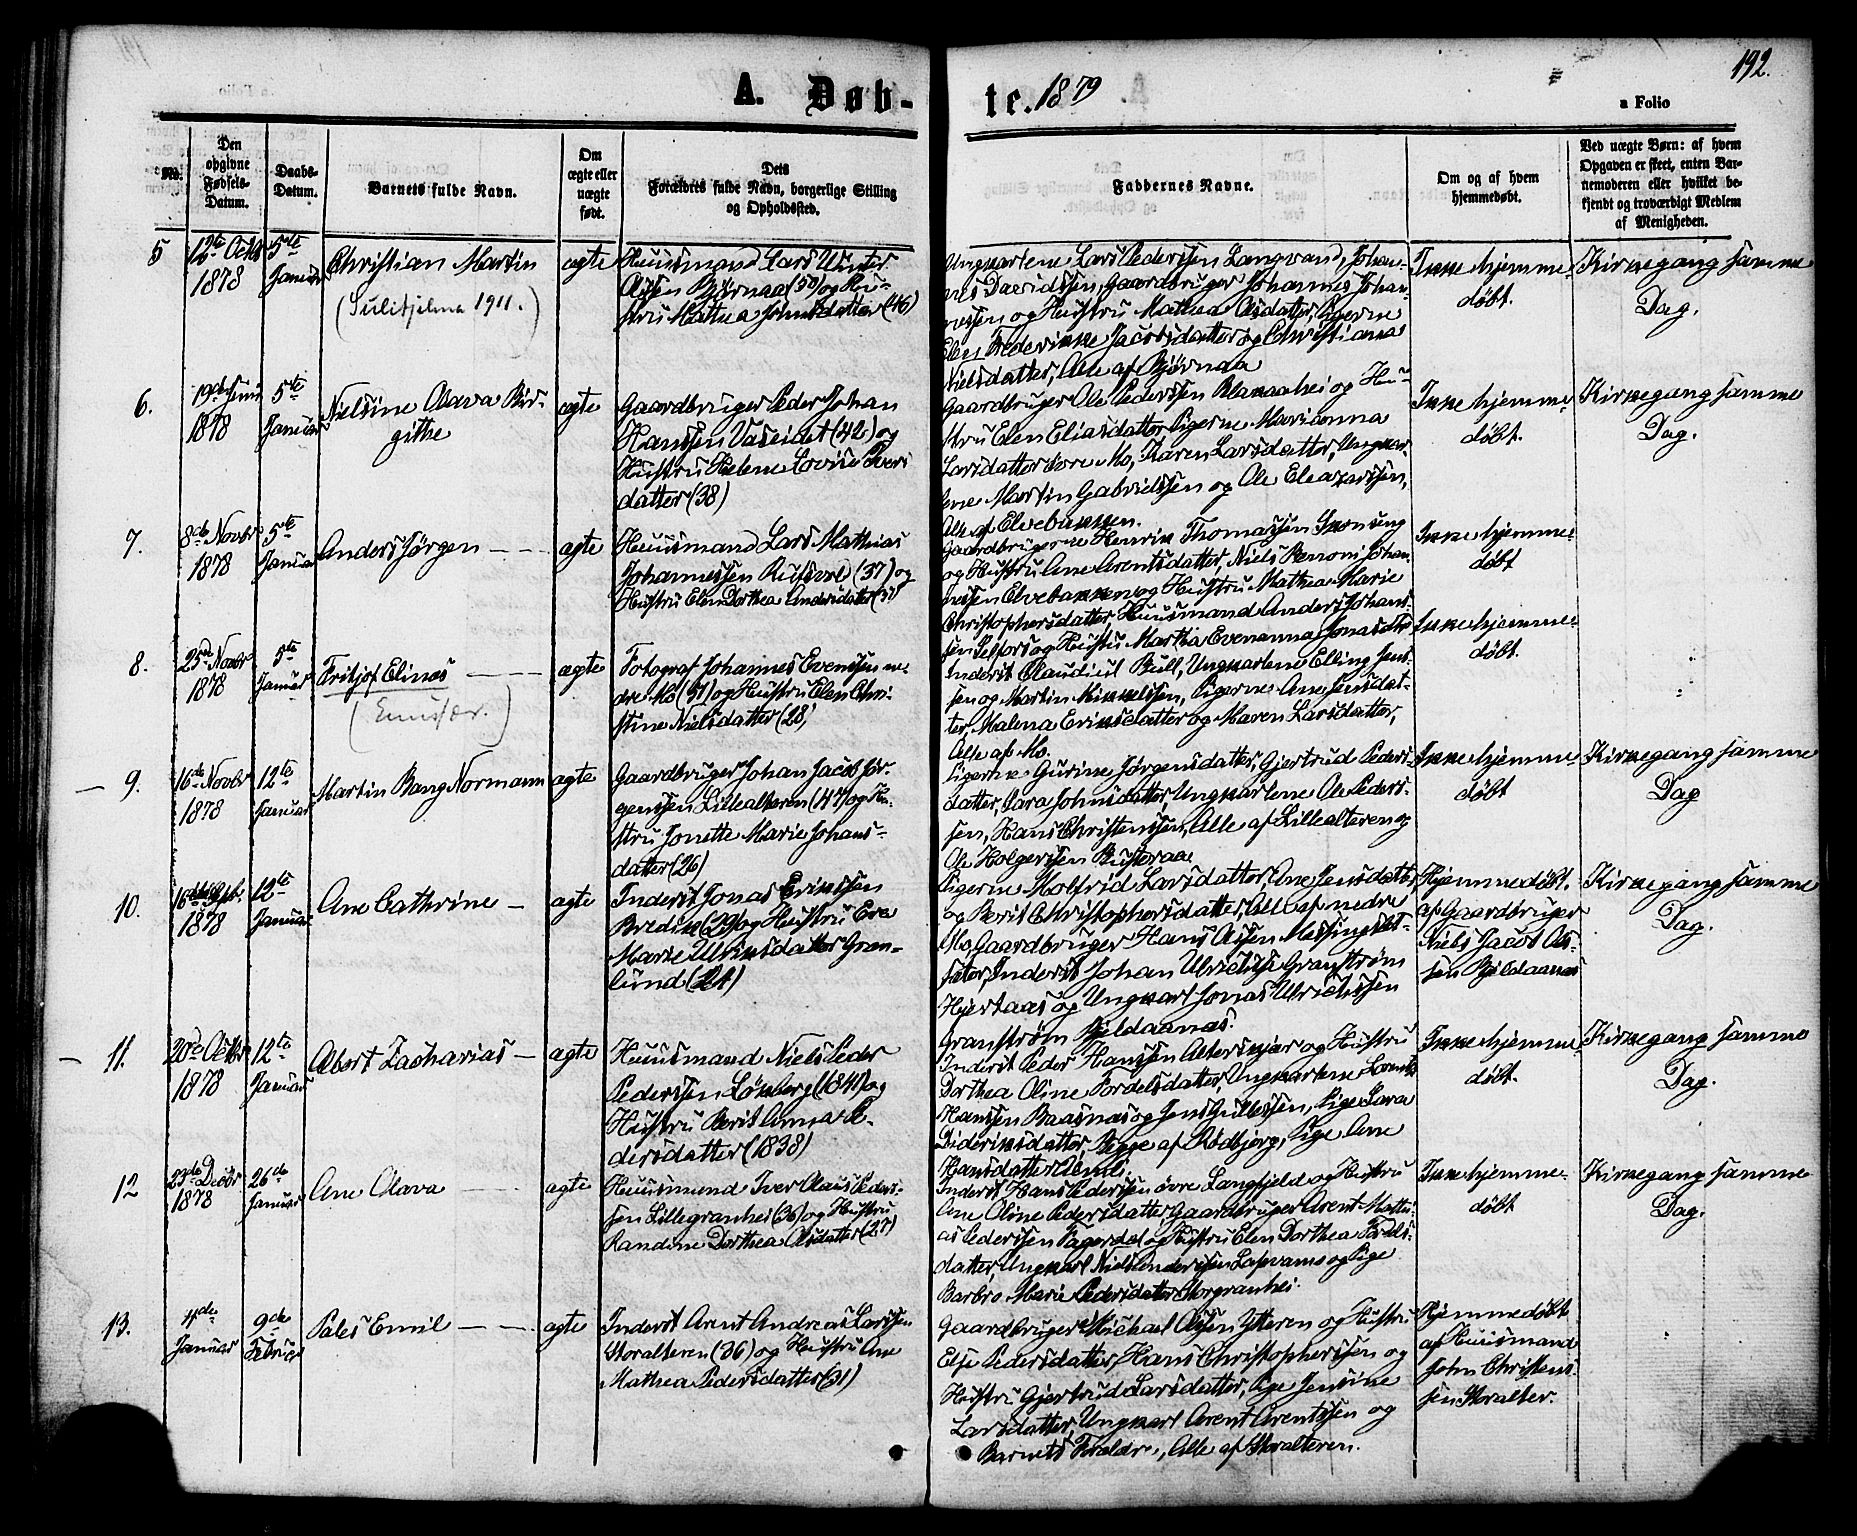 192.
A. Døb-
te. 1879
a Folio
No.
Den opgivne Fødsels-Datum.
Daabs-Datum.
Barnets fulde Navn.
Om ægte eller uægte født.
Dets Forældres fulde Navn, borgerlige Stilling og Opholdssted.
Faddernes Navne.
Om og af hvem hjemmedøbt.
Ved uægte Børn: af hvem Opgaven er skeet, enten Barnemoderen eller hvilket bekjendt og troværdigt Medlem af Menigheden.
5
12te Octbr
1878
5te
Januar
Christian Martin
(Sulitjelma 1911.)
ægte
Huusmand Lars Winter
Olssen Bjørnaa (50) og Hu-
stru Mathea Johnsdatter (46)
Ungkarlene Lars Pederssen Langvand, Johan-
nes Davidssen, Gaardbruger Johannes Johan-
nessen og Hustru Mathea Olsdatter, Pigerne
Elen Frederikke Jacobsdatter og Christiana
Nielsdatter, Alle af Bjørnaa
Ikke hjemme-
døbt.
Kirkegang samme
Dag.
6.
19de Juni
1878
5te
Januar
Nielsine Olava Bir-
githe
ægte
Gaardbruger Peder Johan
Hanssen Vaseidet (42) og
Hustru Helene Lovise Ivers
datter (38)
Gaardbruger Ole Pederssen Blakaahei og Hu-
stru Elen Eliasdatter, Pigerne Marianna
Larsdatter øvre Mo, Karen Larsdatter, Ungkar-
lene Martin Gabrielssen og Ole Eleazarssen,
Alle af Elvebakken.
Ikke hjemme-
døbt.
Kirkegang samme
Dag.
7.
8de Novbr
1878
5te
Januar
Anders Jørgen
ægte
Huusmand Lars Mathias
Johannessen Rufsvold (37) og
Hustru Elen Dorthea Andersdatter (37)
Gaardbrugerne Henrik Thomassen Skonseng
og Hustru Ane Arentsdatter, Niels Benoni Johan-
nessen Elvebakken og Hustru Mathea Marie
Christophersdatter, Huusmand Anders Johans-
sen Selfors og Hustru Martha Evenanna Jonasdtr
Ikke hjemme-
døbt
8.
25de Novbr
1878
5te
Januar
Fritjof Elinas
ægte
Fotograf Johannes Evenssen ne-
dre Mo (51) og Hustru Elen Chri-
stine Nielsdatter (28)
Inderst Claudius Bull, Ungkarlene Elling Jens-
sen og Martin Mikkelssen, Pigerne Ane Jensdat-
ter, Malena Eriksdatter og Maren Larsdatter,
Alle af Mo.
Ikke hjemme-
døbt.
9.
16de Novbr
1878
12te
Januar
Martin Bang Normann
ægte
Gaardbruger Johan Jacob Jør-
genssen Lillealteren (47) og Hu-
stru Jonette Marie Johans-
datter (26)
Pigerne Gurine Jørgensdatter, Gjertrud Peders-
datter, Sara Johnsdatter, Ungkarlene Ole Peders-
sen, Hans Christenssen, Alle af Lillealteren og
Ole Holgerssen Bustoraa
Ikke hjemme-
døbt
Kirkegang samme
Dag
10.
1878
12te
Januar
Ane Cathrine
ægte
Inderst Jonas Erikssen
Bredek (29) og Hustru Eva
Marie Ulriksdatter Gran-
lund (24)
Pigerne Molfrid Larsdatter, Ane Jensdatter
og Berit Christophersdatter, Alle af nedre
Mo, Gaardbruger Hans Olssen Messingslet-
Inderst Johan Ulrichssen Granstrøm
Hjertaas og Ungkarl Jonas Ulrichssen
Granstrøm Bjeldaanæs.
Hjemmedøbt.
af Gaardbruger
Niels Jacob Ols-
sen Bjeldaanæs
Kirkegang samme
Dag.
11.
20de Octbr
1878
12te
Januar
Albert Zacharias
ægte
Huusmand Niels Peder
Pederssen Løkberg (1840) og
Hustru Berit Anna Pe-
dersdatter (1838)
Inderst Peder Hanssen Alterskjær og Hustru
Dorthea Oline Fordelsdatter, Ungkarlene Lorentz
Hanssen Baasnæs og Jens Jullussen, Pige Sara
Dideriksdatter, Begge af Rødbjerg, Pige Ane
Hansdatter
Ikke hjemme-
døbt.
Kirkegang samme
Dag.
12
23de Decbr
1878
26de
Januar
Ane Olava
ægte
Huusmand Iver Olaus Peders-
sen Lillegranhei (36) og Hustru
Randine Dorthea Olsdatter (27)
Inderst Hans Pederssen øvre Langfjeld og Hustru
Ane Oline Pedersdatter, Gaardbruger Arent Mathi-
as Pederssen Fagerdal og Hustru Elen Dorthea Fordels-
datter, Ungkarl Niels Anderssen Lapvams og Pige
Barbro Marie Pedersdatter Storgranhei.
Ikke hjemme-
døbt
Kirkegang samme
Dag.
13.
4de
Januar
9de
Februar
Pales Emil
ægte
Inderst Arent Andreas Larssen
Storalteren (36) og Hustru Ane
Mathea Pedersdatter (31)
Gaardbruger Michael Olssen Ytteren og Hustru
Else Pedersdatter, Hans Christopherssen og
Hustru Gjertrud Larsdatter, Pige Jensine
Larsdatter, Ungkarl Arent Arentssen og
Barnets Forældre, Alle af Storalteren.
Hjemmedøbt
af Huusmand
John Christens-
sen Storalter.